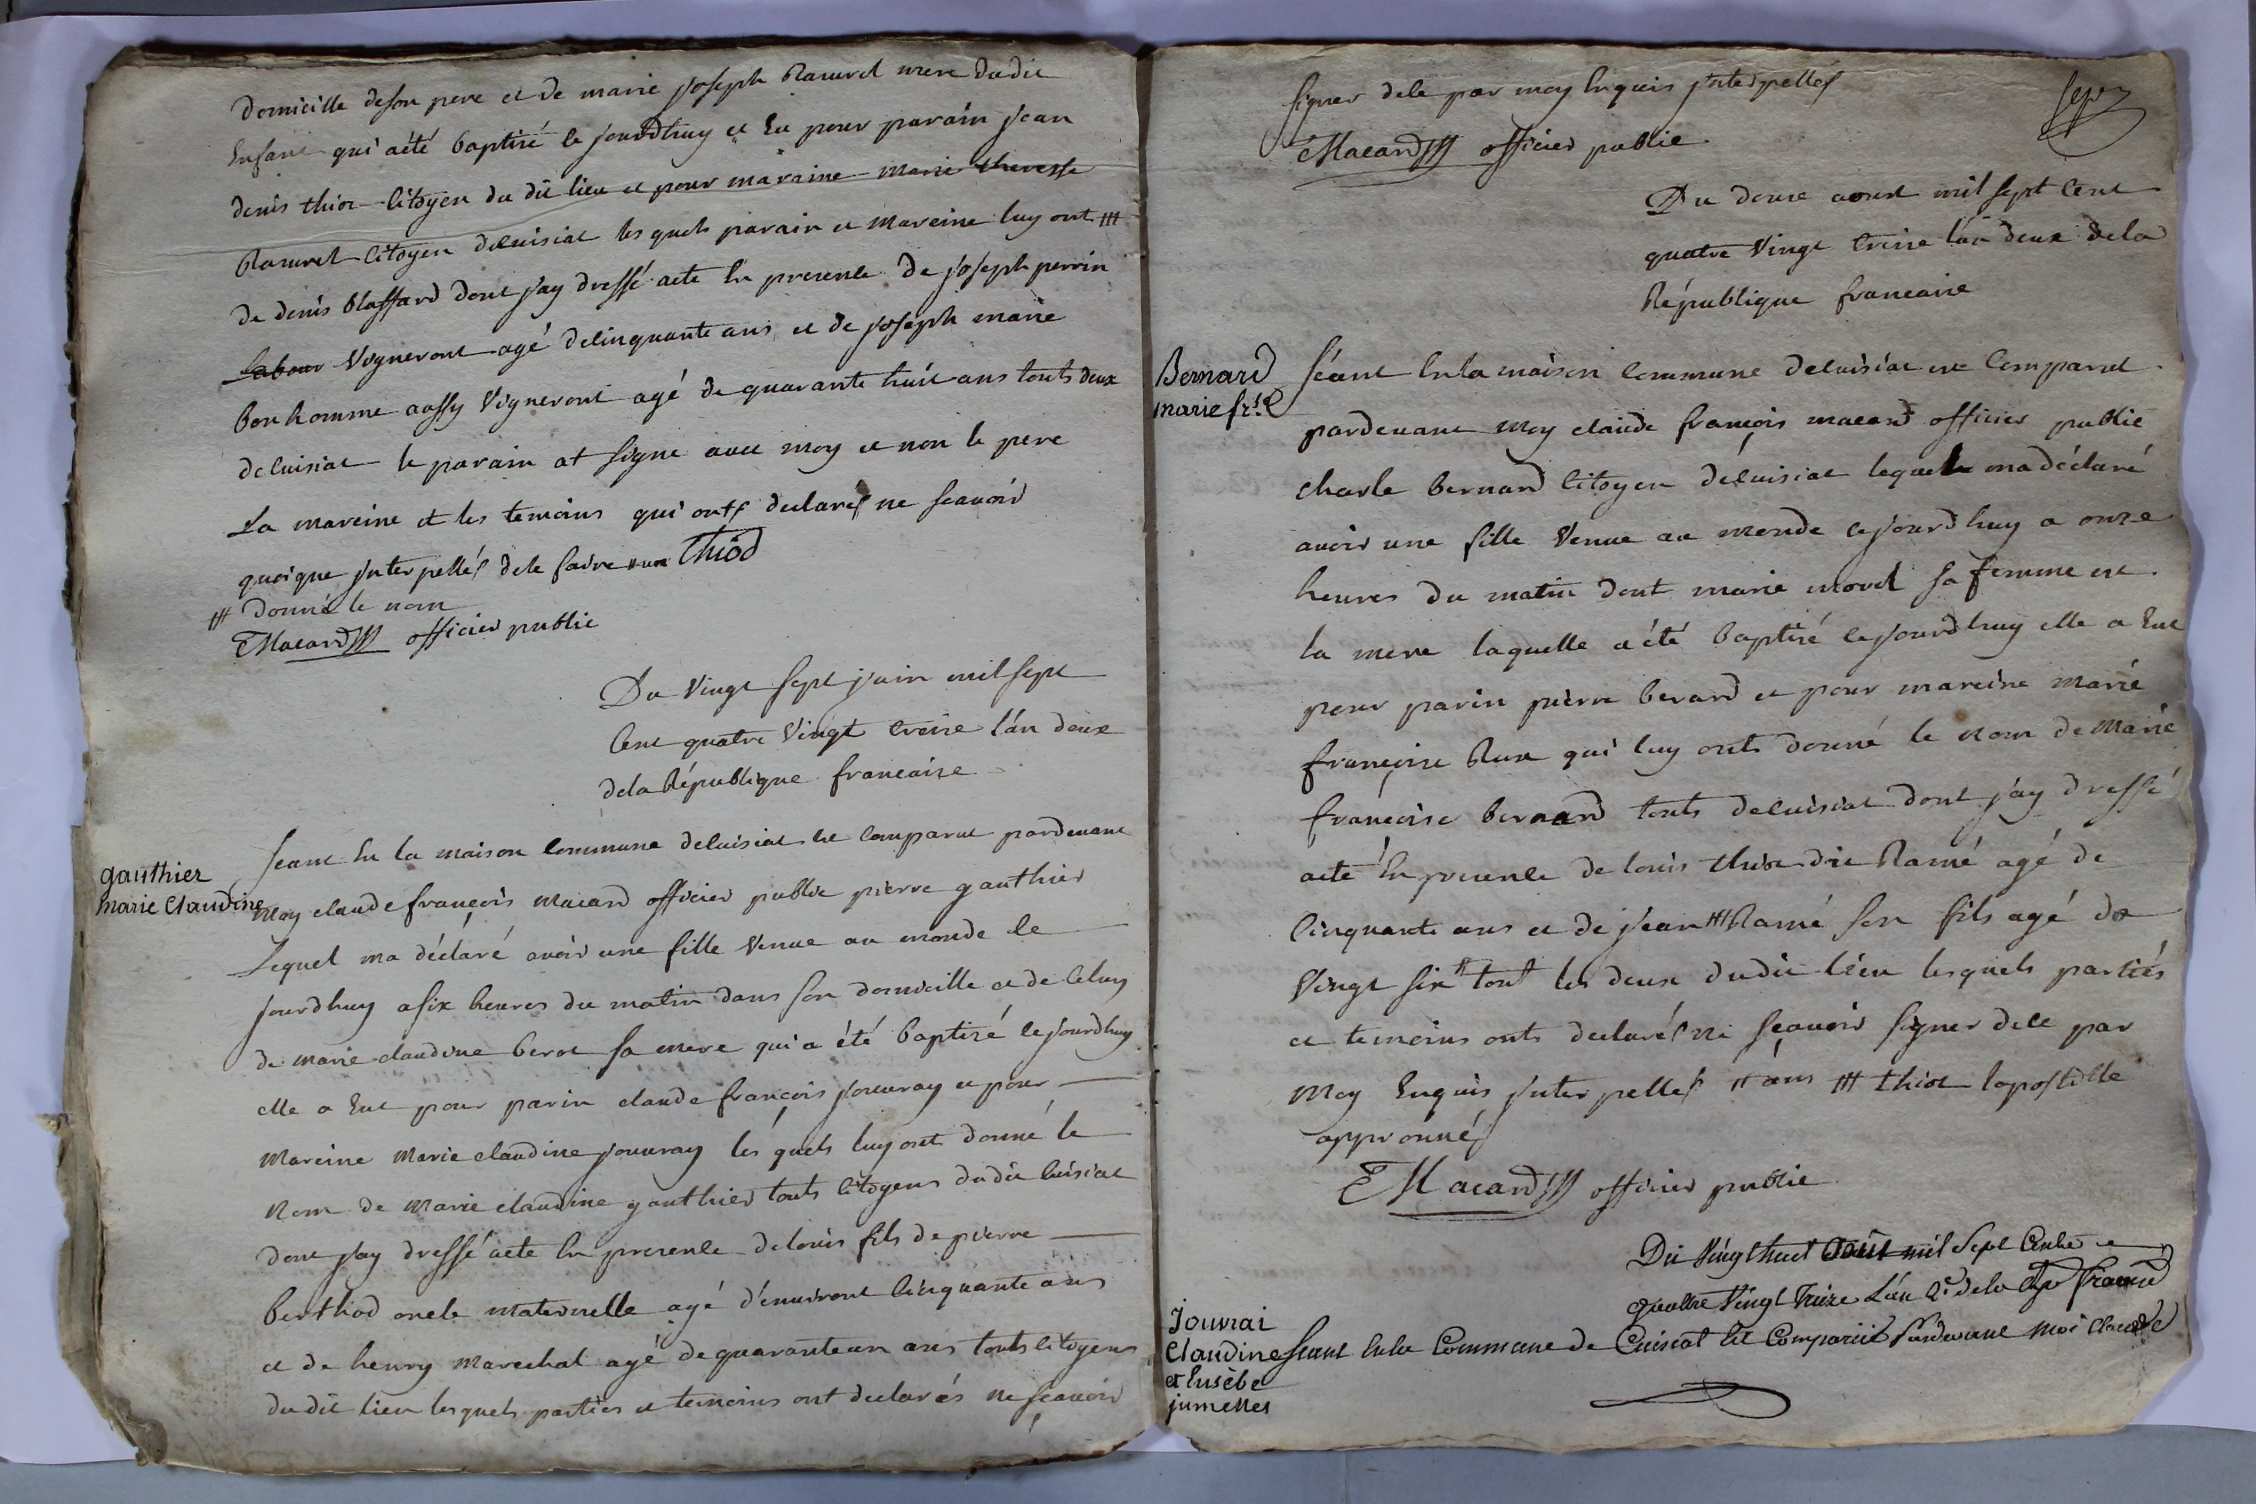 Domicille deson pere et de marie joseph Ravurel mere dudit
Enfant qui aété baptisé le jourdhuy et Eu pour parain jean
denis thiot Citoyen du dit lieu et pour maraine marie theresse
Ravurel Citoyen deCuisiat les quels parain et mareine luy ont ###
de denis blaffard dont j'ay dressé acte En presence de joseph perrin
Labour Vigneront agé deCinquante ans, et de joseph marie
bonhomme aussy Vigneront agé de quarante huit ans touts deux
deCuisiat le parain at signe avec moy et non le pere
La mareine et les temoins qui onts declarés ne scavoir
quoique jnterpellés dele faire Thiod
### donné le nom
CMacard officier public
Du Vingt sept juin mil sept
Cent quatre Vingt treize l'an deux
dela République francaise
gauthier
marie Claudine
seant En la maison Commune deCuisiat est Comparut pardevant
Moy claude françois Macard officier public pierre gauthier
Lequel ma déclaré avoir une fille Venue au monde le
jourdhuy a six heures du matin dans son domicille et de Celuy
de marie claudine berot sa mere qui a été baptizé lejourdhuy
elle a Eut pour parin claude françois jouvray et pour
Mareine Marie claudine jouvray les quels luy ont donné le
Nom de Marie claudine gauthier touts Citoyens dudit Cuisiat
dont j'ay dressé acte En presence de louis fils de pierre
berthod oncle maternelle agé d'environt Cinquante ans
et de henry marechal agé de quarante un ans touts Citoyens
du dit lieu lesquels parties et temoins ont declarés ne sçavoir
signer dele par moy Enquis jnterpellés
CMacard officier public
Sept
Du douze aoust mil sept Cent
quatre Vingt treize l'an deux dela
République francaise
Bernard
marie frse
séant En la maison Commune deCuisiat est Comparut
pardevant Moy claude françois macard officier public
charle bernard Citoyen déCuisiat lequel ma déclaré
avoir une fille Venue au monde cejourdhuy a onze
heures du matin dont marie morel sa femme est
la mere laquelle a été baptisé cejourdhuy elle a Eut
pour parin pierre berard et pour mareine marie
françoise Rux qui luy onts donné le Nom de Marie
françoise bernard touts deCuisiat dont j'ay dressé
acte En presence de louis thiot dit Ramé agé de
Cinquante ans et de jean ### Ramé son fils agé de
Vingt six # tout les deux dudit lieu lesquels parties
et temoins onts declarés ne sçavoir signer dele par
Moy Enquis jnterpellés # ans ### thiot lapostille
approuvé
CMacard officier public
Du Vingt huit Août mil Sept Cents
quattre Vingt treize L'an 2e de la
Jouvrai
Claudine
et Eusèbe
jumelles
séant En la Commune de Cuisiat Est Comparut Pardevant moi Claude